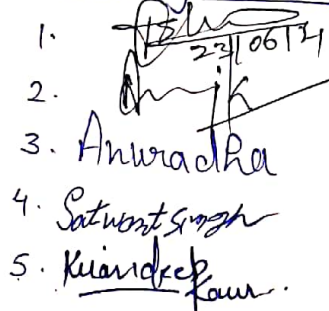 1.
22/06/21
2.
3. Anuradha
4. Satwant Singh
5. Kirandeep
Kaur.